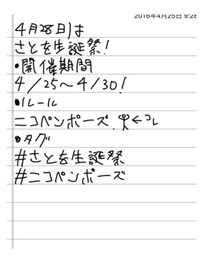 2016年4月25日 9:28
4月28日は
さとを生誕祭!
・開催期間
4/25〜4/30!
・ルール
ニコペンポーズ ←コレ
・タグ
#さとを生誕祭
#ニコペンポーズ